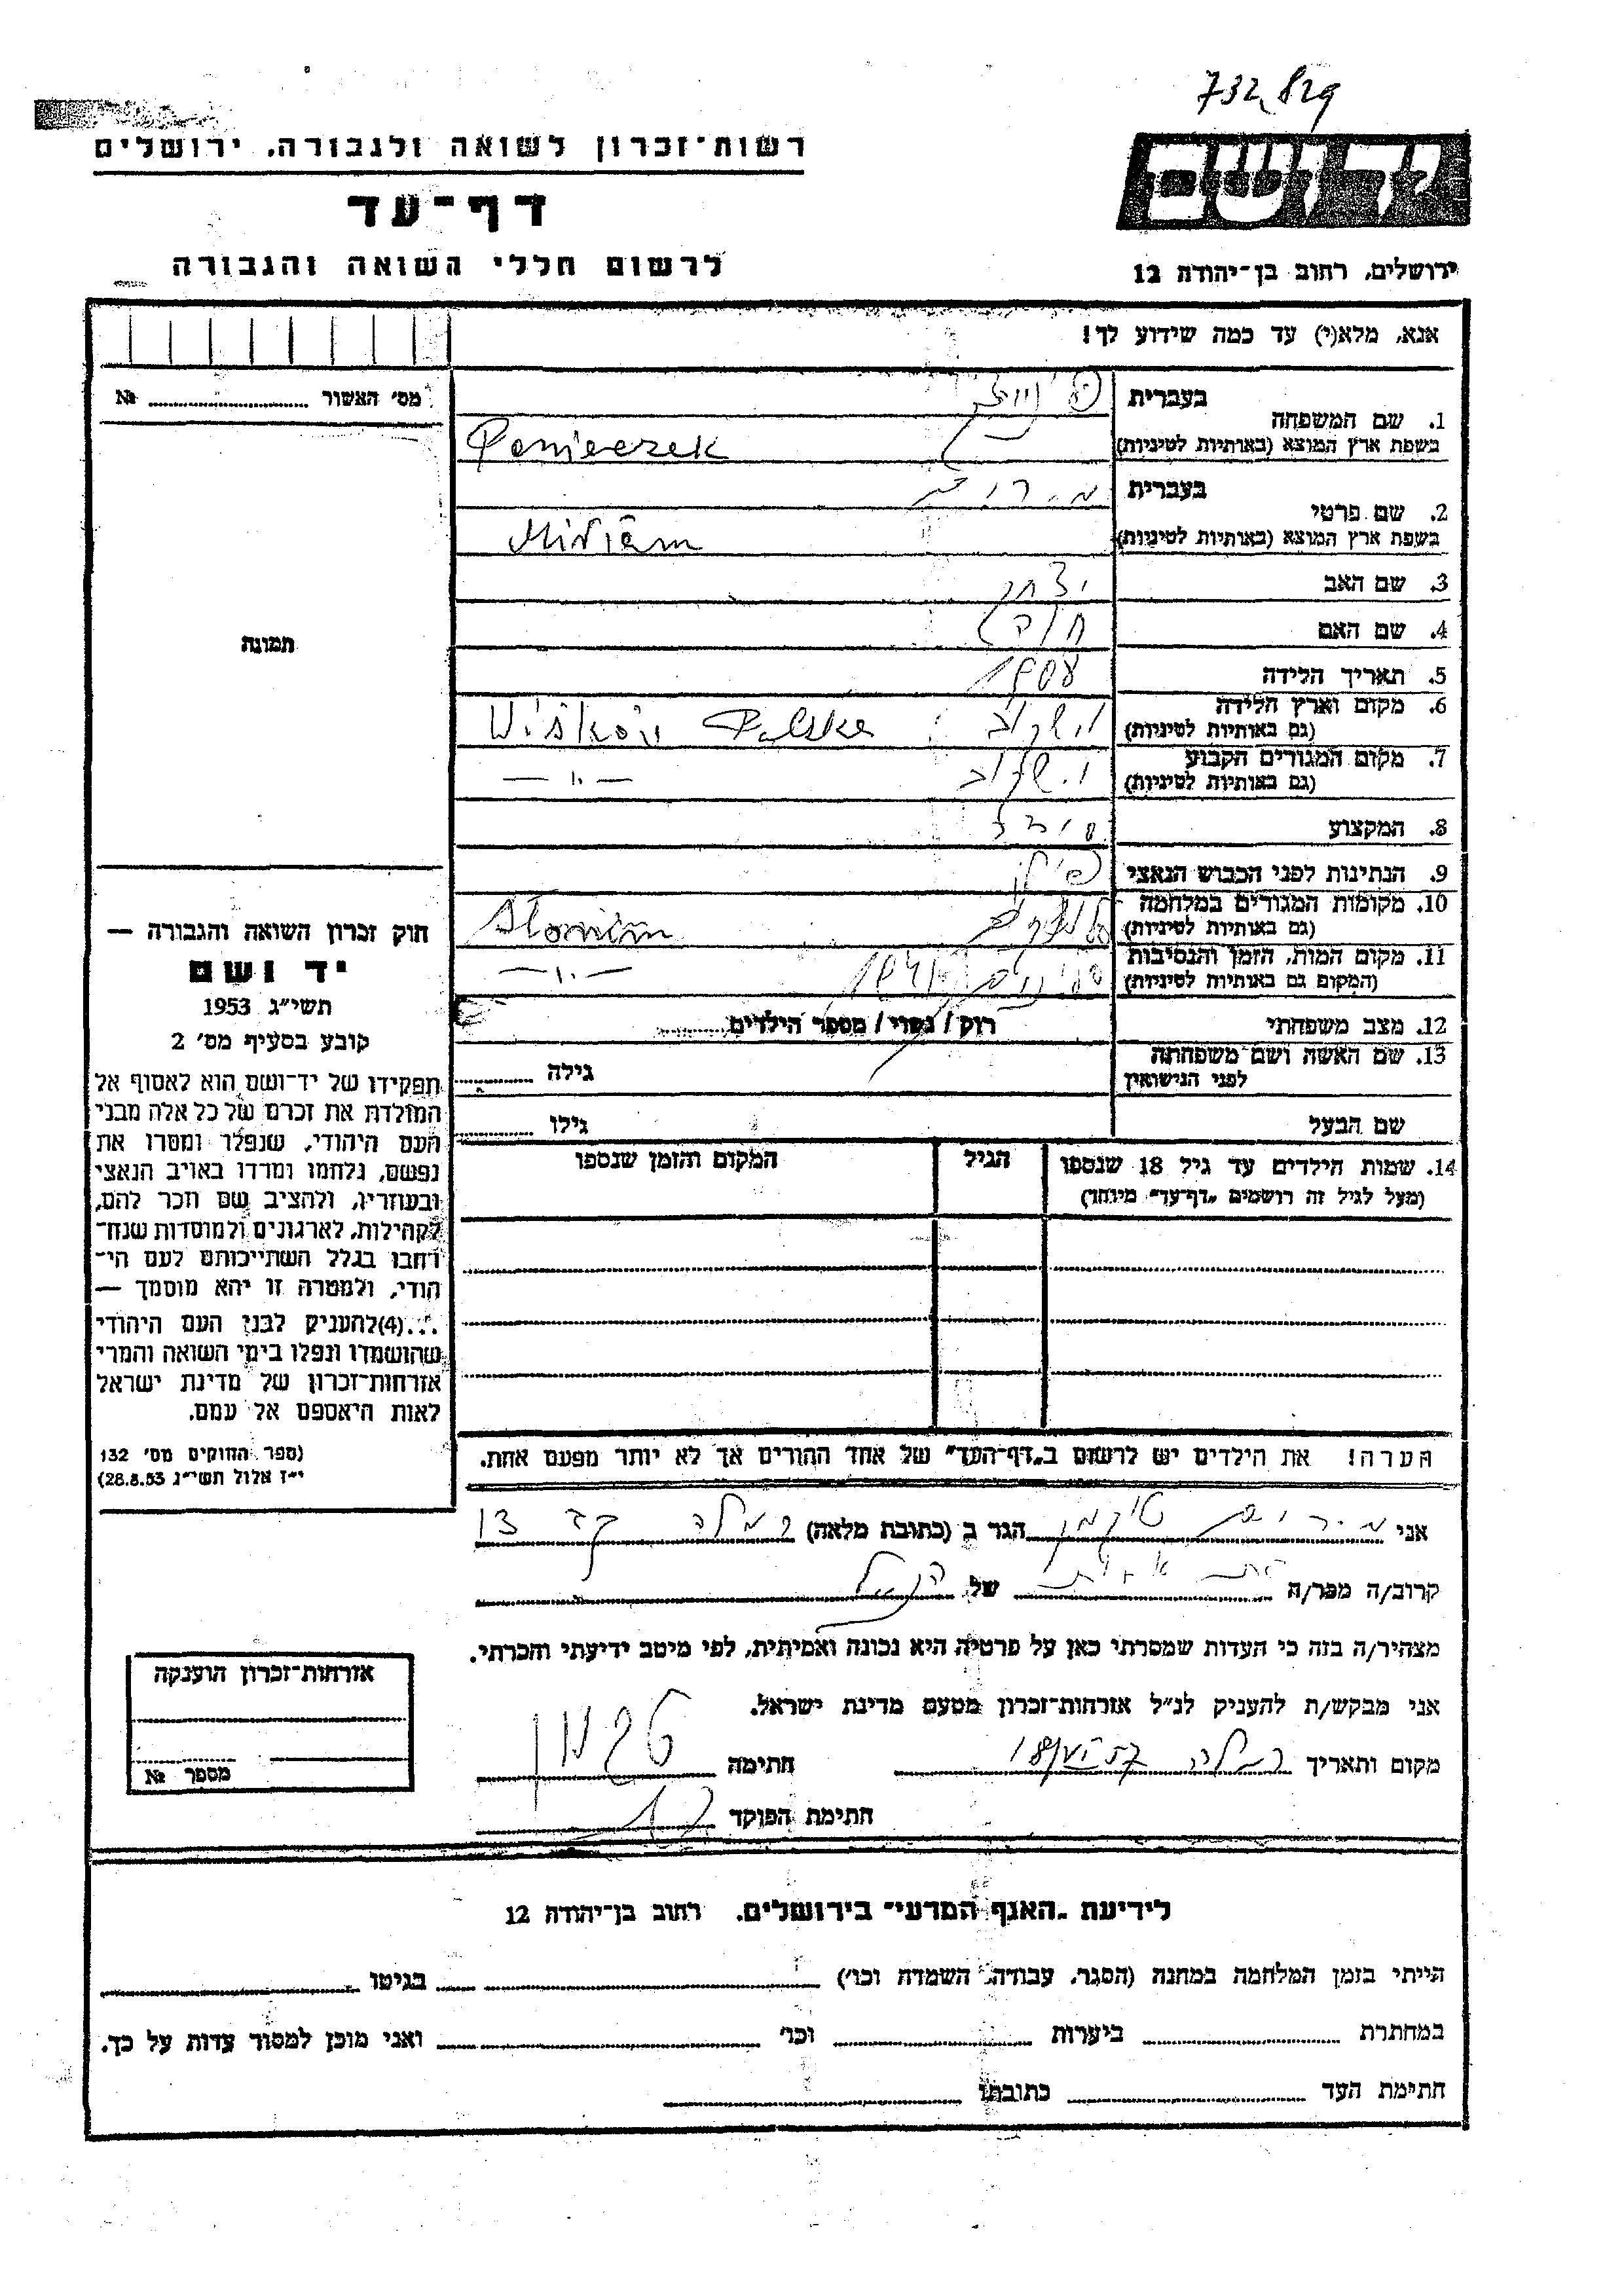 732,829
רשות־זכרון לשואה ולגבורה, ירושלים
דף־עד
לרשום חללי השואה והגבורה
יד ושם
ירושלים, רחוב בן־יהודה 12
אנא, מלא(י) עד כמה שידוע לך!
מס' האשור № 
1. שם המשפחה בעברית
בשפת ארץ המוצא (באותיות לטיניות) Ponieczek
2. שם פרטי בעברית מירים
בשפת ארץ המוצא (באותיות לטיניות) Miriam
3. שם האב יצחק
4. שם האם
5. תאריך הלידה 1908
6. מקום וארץ הלידה
(גם באותיות לטיניות) וישקוב Wiškóv Polska
7. מקום המגורים הקבוע
(גם באותיות לטיניות) וישקוב — ״ —
8. המקצוע
9. הנתינות לפני הכבוש הנאצי פולין
10. מקומות המגורים במלחמה
(גם באותיות לטיניות) סלונים Słonim
11. מקום המות, הזמן והנסיבות
(המקום גם באותיות לטיניות) סלונים — ״ —
12. מצב משפחתי רווק / נשוי / מספר הילדים
13. שם האשה ושם משפחתה
לפני הנישואין גילה
שם הבעל גילו
14. שמות הילדים עד גיל 18 שנספו הגיל המקום והזמן שנספו
(מעל לגיל זה רושמים „דף־עד” מיוחד)
תמונה
חוק זכרון השואה והגבורה —
יד ושם
תשי״ג 1953
קובע בסעיף מס' 2
תפקידו של יד־ושם הוא לאסוף אל
המולדת את זכרם של כל אלה מבני
העם היהודי, שנפלו ומסרו את
נפשם, נלחמו ומרדו באויב הנאצי
ובעוזריו, ולהציב שם וזכר להם,
לקהילות, לארגונים ולמוסדות שנח־
רבו בגלל השתייכותם לעם הי־
הודי, ולמטרה זו יהא מוסמך —
...(4) להעניק לבני העם היהודי
שהושמדו ונפלו בימי השואה והמרי
אזרחות־זכרון של מדינת ישראל
לאות היאספם אל עמם.
(ספר החוקים מס' 132
י״ז אלול תשי״ג 28.8.53)
הערה! את הילדים יש לרשום ב„דף־העד” של אחד ההורים אך לא יותר מפעם אחת.
אני מירים הגר ב (כתובת מלאה) רמלה
קרוב/ה מכר/ה של הנ״ל
מצהיר/ה בזה כי העדות שמסרתי כאן על פרטיה היא נכונה ואמיתית, לפי מיטב ידיעתי והכרתי.
אני מבקש/ת להעניק לנ״ל אזרחות־זכרון מטעם מדינת ישראל.
מקום ותאריך רמלה חתימה
חתימת הפוקד
אזרחות־זכרון הוענקה
מספר №
לידיעת „האגף המדעי” בירושלים, רחוב בן־יהודה 12
הייתי בזמן המלחמה במחנה (הסגר, עבודה, השמדה וכו') בגיטו
במחתרת ביערות וכו' ואני מוכן למסור עדות על כך.
חתימת העד כתובתו